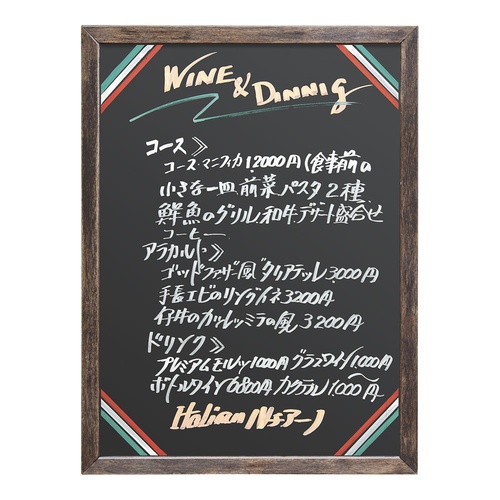 WINE & DINNIG
コース》
コース・マニフィカ 12000円 (食事前の
小さな一皿、前菜 パスタ2種
鮮魚のグリル、和牛、デザート盛合せ
コーヒー
アラカルト》
ゴッドファザー風 タリアテッレ 3000円
手長エビのリングイネ 3200円
仔牛のカツレツミラの風 3200円
ドリンク》
プレミアムモルツ 1000円 グラスワイン 1000円
ボトルワイン 6800円 カクテル 1000円〜
Italian バルチアーノ